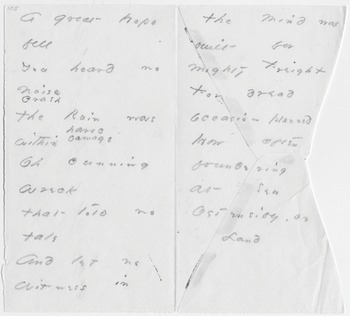 A great hope
fell
You heard no
noise
crash
the Ruin was
havoc
within damage
Oh cunning
wreck
that told no
tale
And let no
witness in
the mind was
built for
mighty Freight
For dread
occasion planned
how often
foundering
at Sea
Ostensibly, on
Land